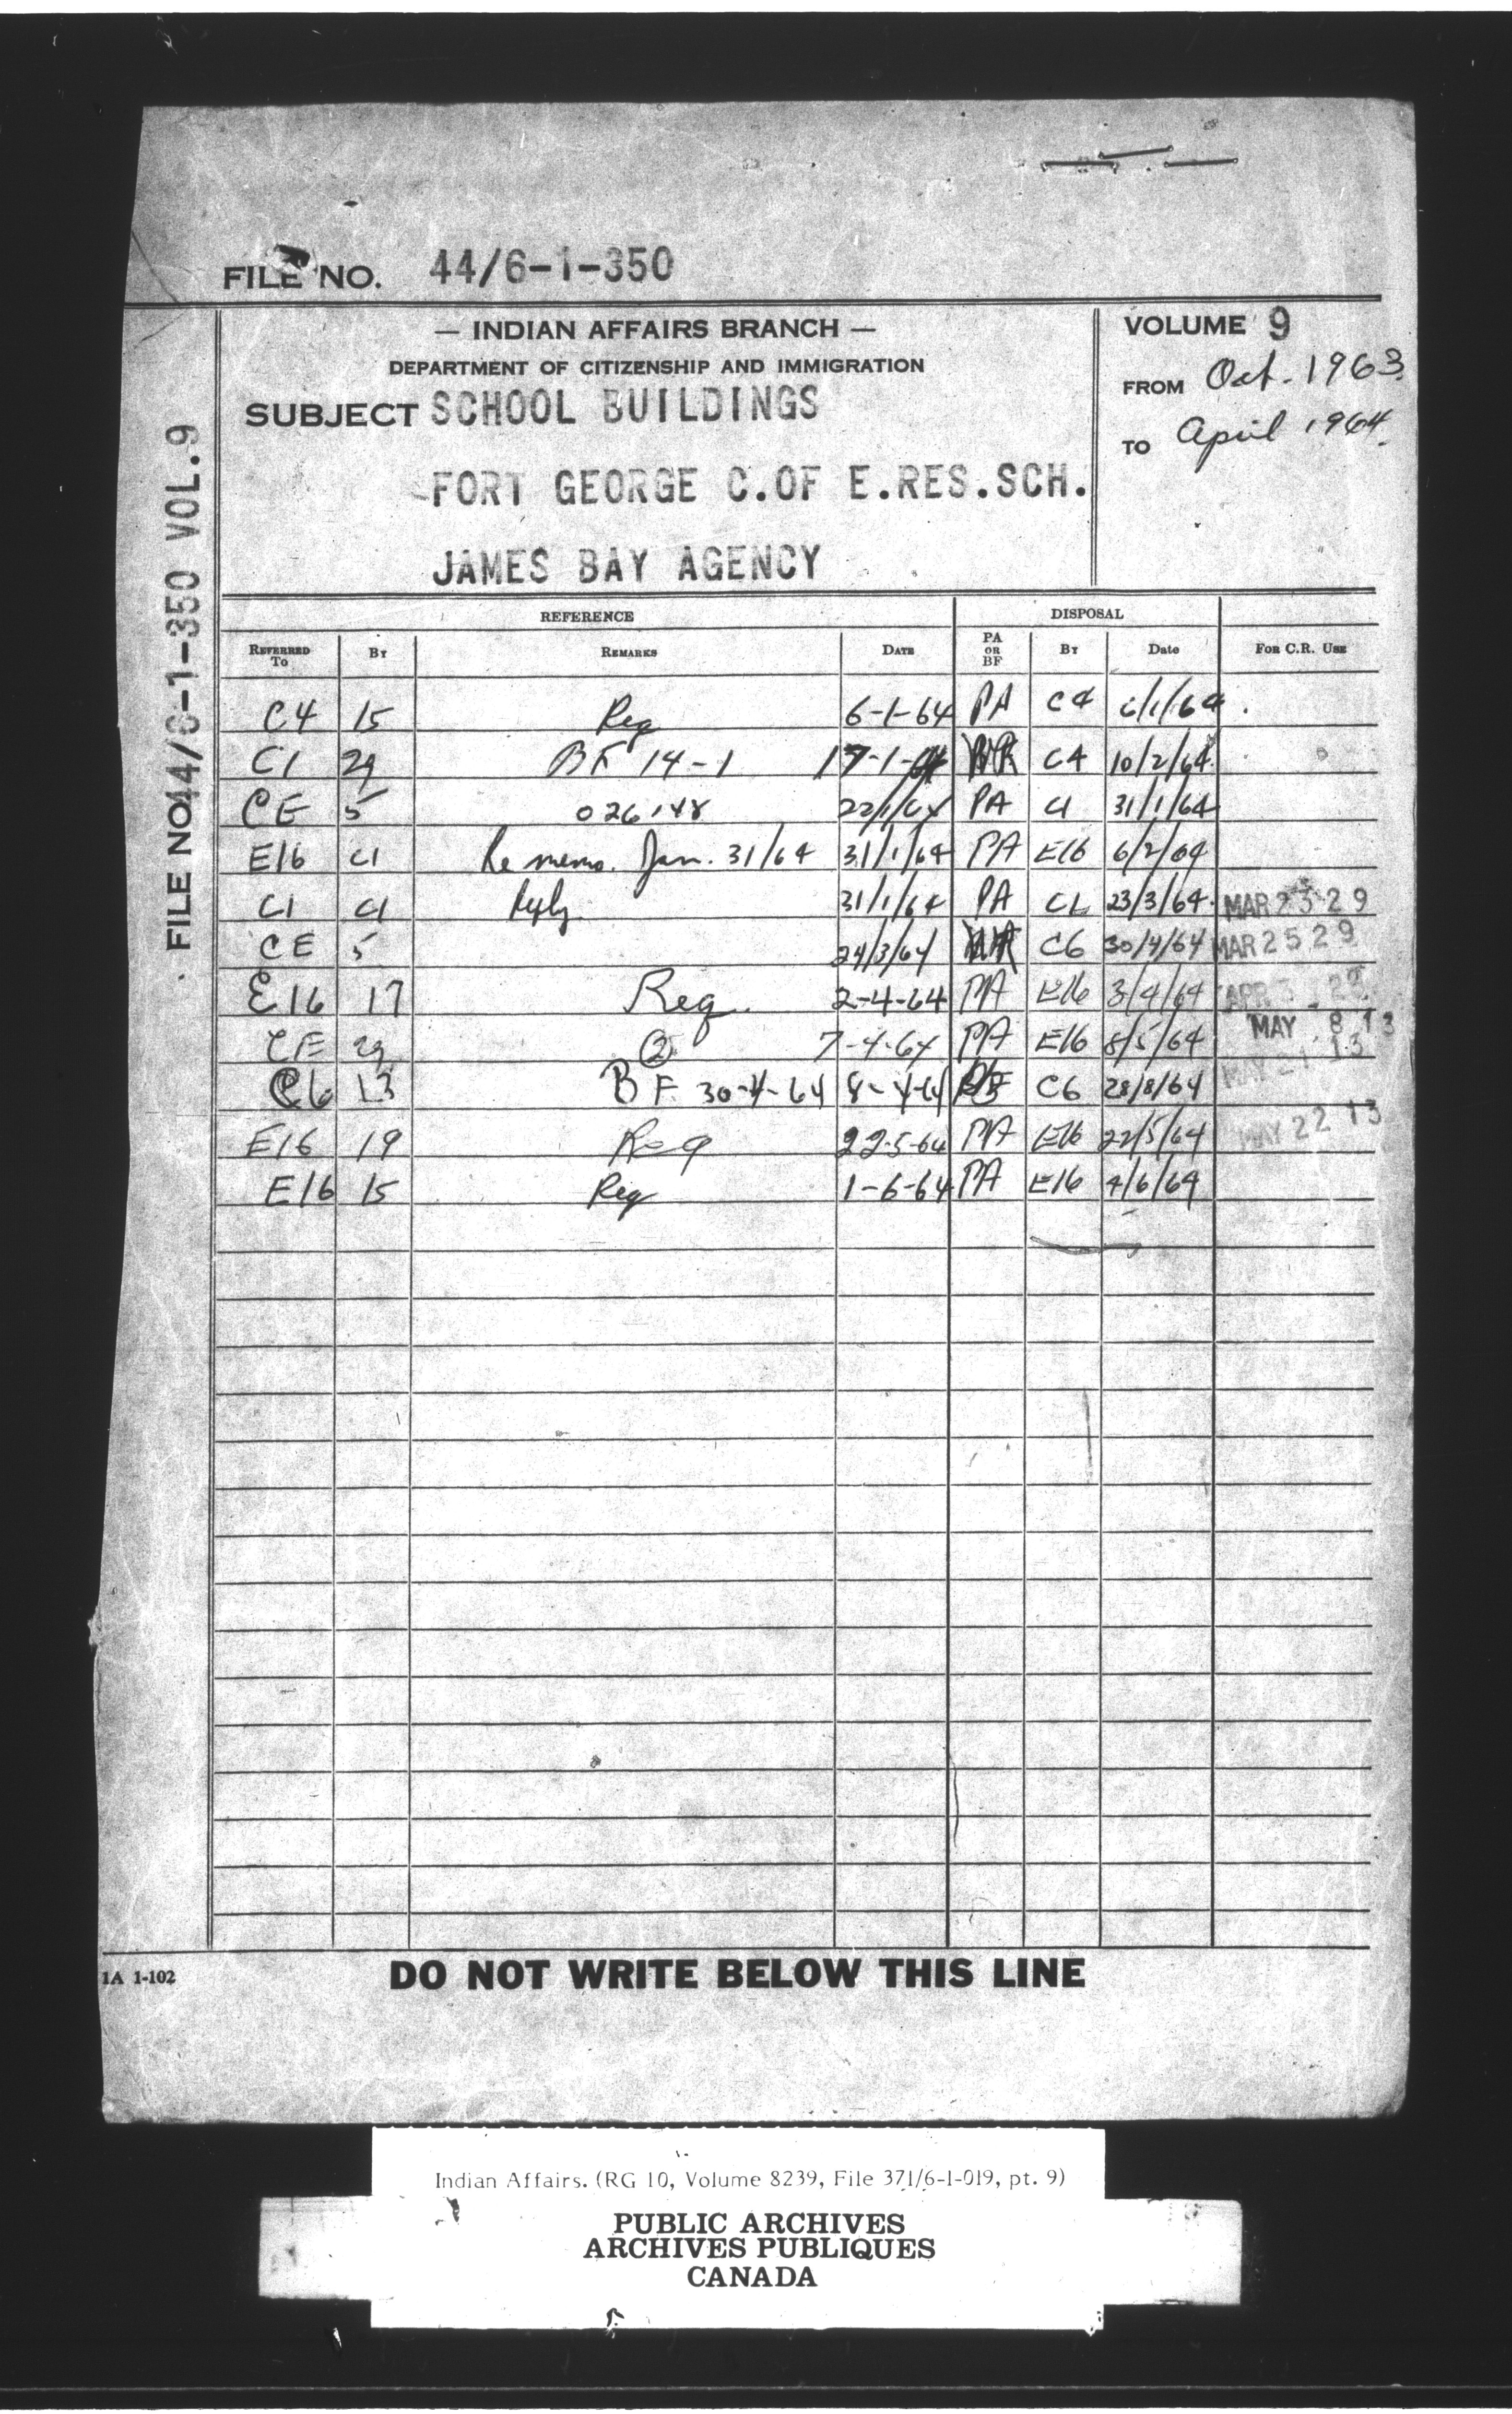 FILE NO. 44/6-1-350
— INDIAN AFFAIRS BRANCH —
DEPARTMENT OF CITIZENSHIP AND IMMIGRATION
SUBJECT SCHOOL BUILDINGS
FORT GEORGE C.OF E.RES.SCH.
JAMES BAY AGENCY
VOLUME 9
FROM Oct. 1963
TO April 1964
FILE NO 44/6-1-350 VOL.9
REFERENCE DISPOSAL
REFERRED TO BY REMARKS DATE PA OR BF BY Date FOR C.R. USE
C4 15 Req 6-1-64 PA C4 6/1/64
C1 29 BF 14-1 17-1-64 C4 10/2/64
CE 5 22/1/64 PA C1 31/1/64
E16 C1 Re memo. Jan. 31/64 31/1/64 PA E16 6/2/64
C1 C1 Reply 31/1/64 PA C1 23/3/64 MAR 23 29
CE 5 24/3/64 C6 30/4/64 MAR 25 29
E16 17 Req. 2-4-64 PA E16 3/4/64 APR 3 29
CE 29 2 7-4-64 PA E16 8/5/64 MAY 8 13
C6 13 BF 30-4-64 8-4-64 C6 28/8/64 MAY 21 13
E16 19 Req 22-5-64 PA E16 22/5/64 MAY 22 13
E16 15 Req 1-6-64 PA E16 4/6/64
1A 1-102 DO NOT WRITE BELOW THIS LINE
Indian Affairs. (RG 10, Volume 8239, File 371/6-1-019, pt. 9)
PUBLIC ARCHIVES
ARCHIVES PUBLIQUES
CANADA